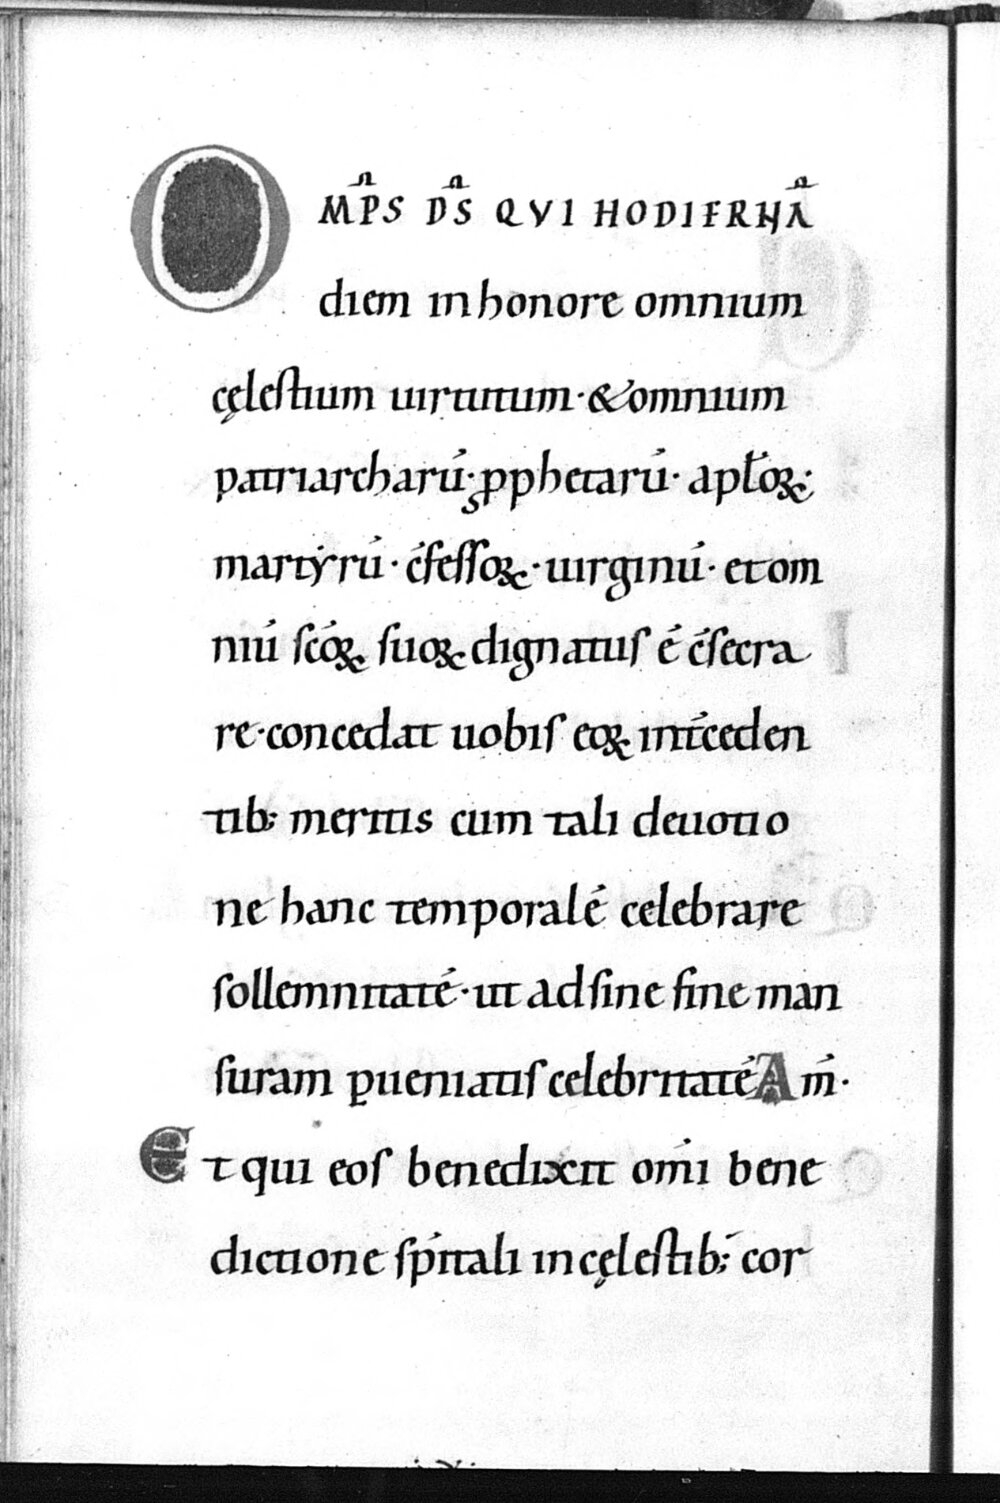 OMP̄S D̄S QVI HODIERNĀ
diem in honore omnium
cęlestium uirtutum · & omnium
patriarcharū · ꝓphetarū · apl̄oꝝ ·
martẏrū · c̄fessoꝝ · uirginū · et om
niū sc̄oꝝ suoꝝ dignatus ē c̄secra
re · concedat uobis eoꝝ int̄ceden
tib; meritis cum tali deuotio
ne hanc temporalē celebrare
sollemnitatē · ut ad sine fine man
suram ꝑueniatis celebritatē Am̄ ·
Et qui eos benedixit om̄i bene
dictione sp̄itali in cęlestib; cor